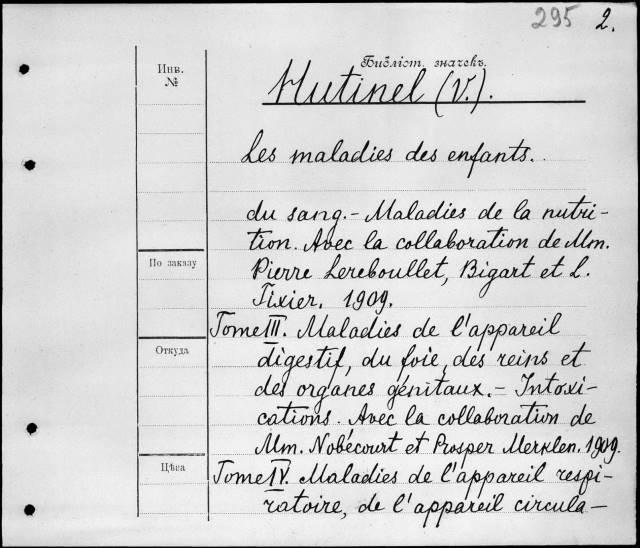 295 2.
Библіот. значекъ.
Инв.
№
Hutinel (V.).
Les maladies des enfants.
du sang. – Maladies de la nutri-
tion. Avec la collaboration de Mm.
По заказу
Pierre Lereboullet, Bigart et L.
Tixier. 1909.
Tome III. Maladies de l'appareil
Откуда
digestif, du foie, des reins et
des organes génitaux. – Intoxi-
cations. Avec la collaboration de
Mm. Nobécourt et Prosper Merklen. 1909.
Цѣна
Tome IV. Maladies de l'appareil respi-
ratoire, de l'appareil circula-